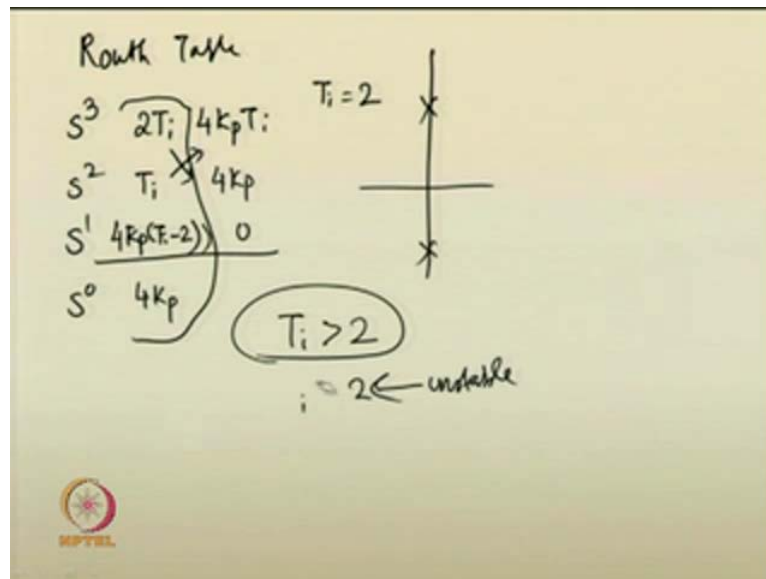 Routh Table
S³ 2Tᵢ 4KₚTᵢ
S² Tᵢ 4Kₚ
S¹ 4Kₚ(Tᵢ-2) 0
S⁰ 4Kₚ
Tᵢ = 2
Tᵢ > 2
2 ← unstable
NPTEL